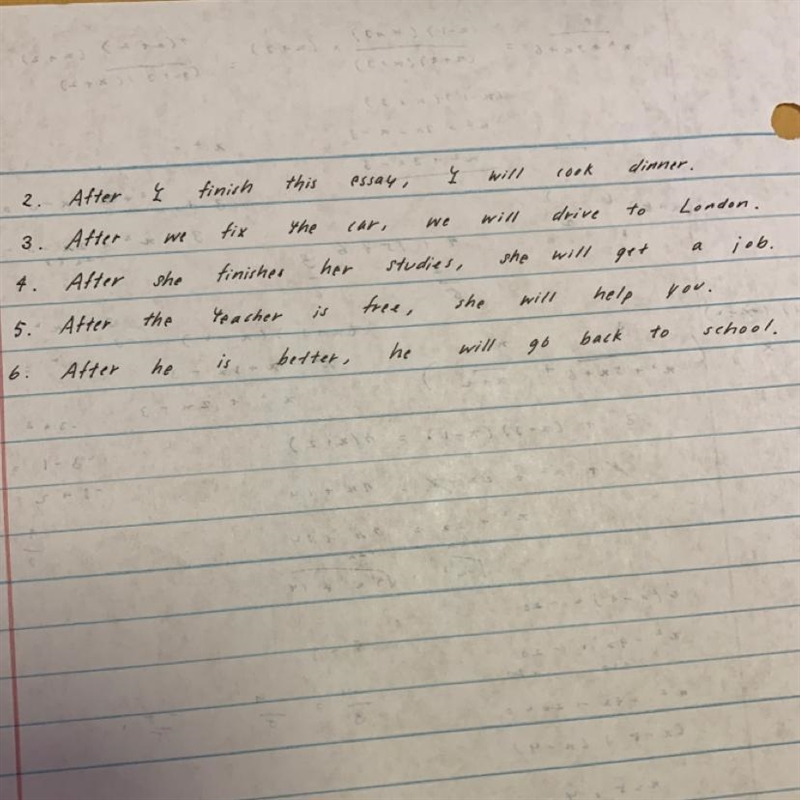 2. After I finish this essay, I will cook dinner.
3. After we fix the car, we will drive to London.
4. After she finishes her studies, she will get a job.
5. After the teacher is free, she will help you.
6. After he is better, he will go back to school.